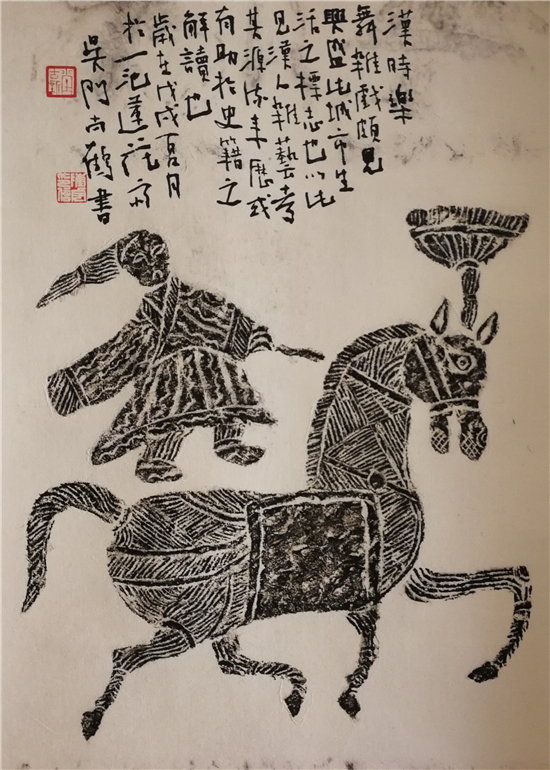 漢時樂
舞雜戲頗見
興盛此城市生
活之標志也以此
見漢人雜藝考
其源流来歷或
有助於史籍之
解讀也
歲在戊戌夏月
於一池蓮花斋
吳門尚鶴書